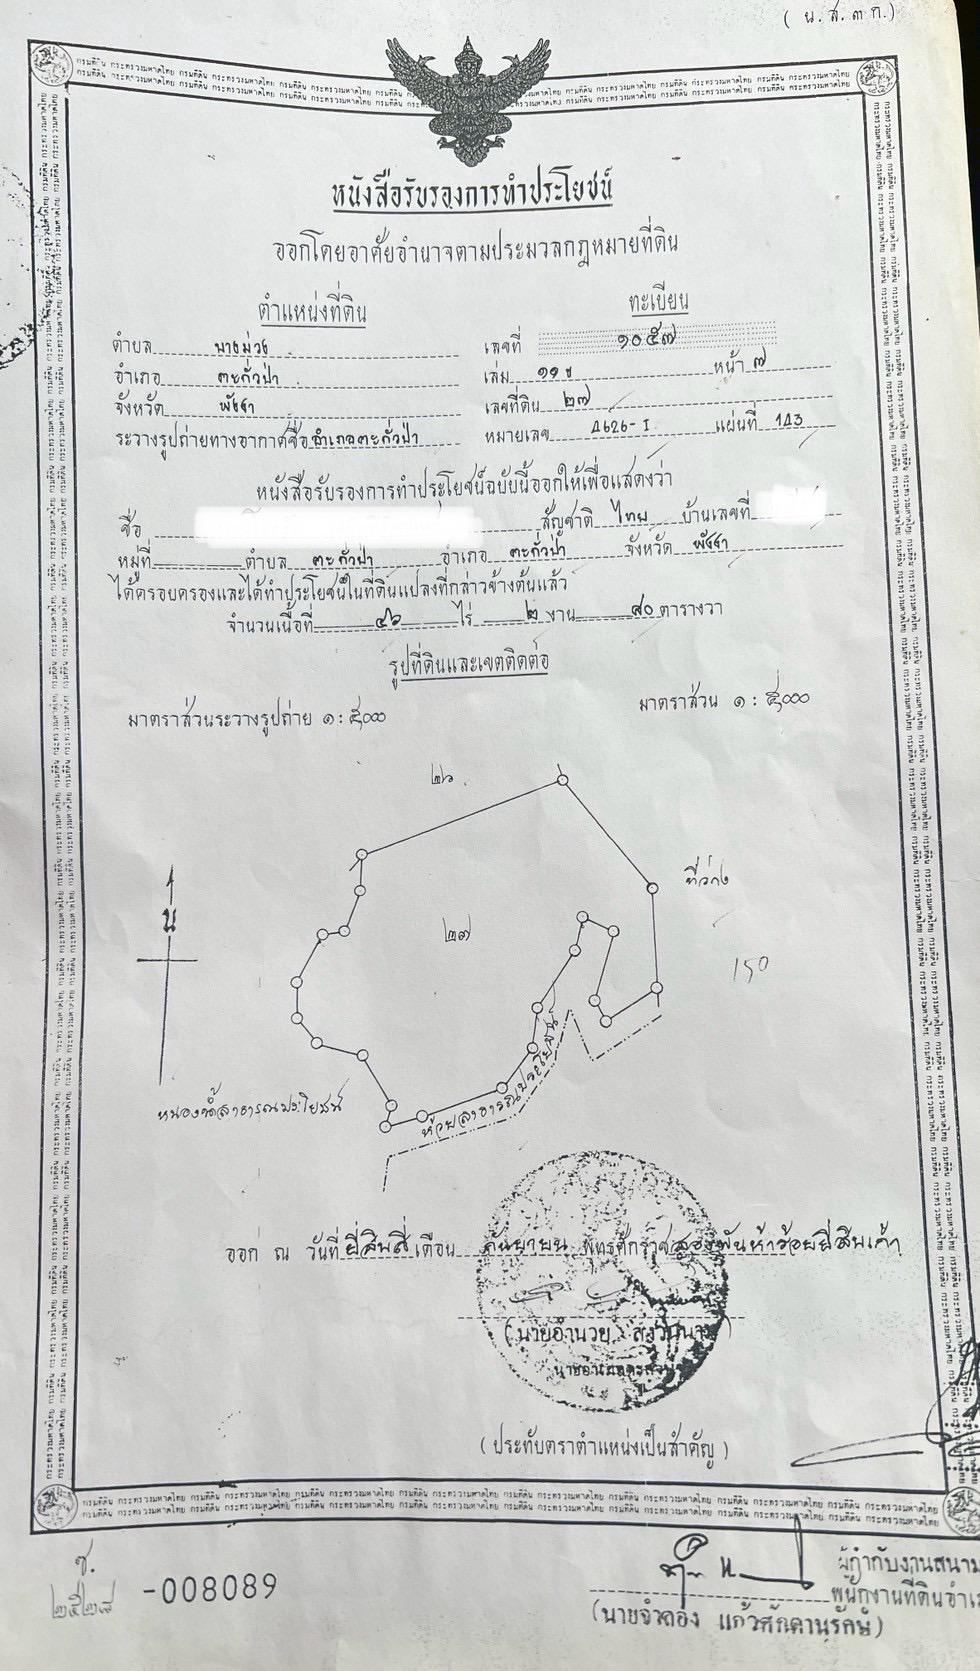 ( น.ส.๓ก.)
กรมที่ดิน กระทรวงมหาดไทย กรมที่ดิน กระทรวงมหาดไทย กรมที่ดิน กระทรวงมหาดไทย
หนังสือรับรองการทำประโยชน์
ออกโดยอาศัยอำนาจตามประมวลกฎหมายที่ดิน
ตำแหน่งที่ดิน
ทะเบียน
ตำบล บางม่วง
เลขที่ ๑๐๕๗
อำเภอ ตะกั่วป่า
เล่ม ๑๑ข หน้า ๗
จังหวัด พังงา
เลขที่ดิน ๒๗
ระวางรูปถ่ายทางอากาศชื่อ อำเภอตะกั่วป่า
หมายเลข 4626-I แผ่นที่ 143
หนังสือรับรองการทำประโยชน์ฉบับนี้ออกให้เพื่อแสดงว่า
ชื่อ สัญชาติ ไทย บ้านเลขที่
หมู่ที่ ตำบล ตะกั่วป่า อำเภอ ตะกั่วป่า จังหวัด พังงา
ได้ครอบครองและได้ทำประโยชน์ในที่ดินแปลงที่กล่าวข้างต้นแล้ว
จำนวนเนื้อที่ ๔๖ ไร่ ๒ งาน ๙๐ ตารางวา
รูปที่ดินและเขตติดต่อ
มาตราส่วนระวางรูปถ่าย ๑ : ๕,๐๐๐
มาตราส่วน ๑ : ๕,๐๐๐
๒๖
ที่ว่าง
น
๒๗
150
หนองน้ำสาธารณประโยชน์
ห้วยสาธารณประโยชน์
ออก ณ วันที่ ยี่สิบสี่ เดือน กันยายน พุทธศักราช สองพันห้าร้อยยี่สิบเก้า
(นายอำนวย
(ประทับตราตำแหน่งเป็นสำคัญ)
กรมที่ดิน กระทรวงมหาดไทย กรมที่ดิน กระทรวงมหาดไทย กรมที่ดิน กระทรวงมหาดไทย
ช.
๒๕๒๘
-008089
ผู้กำกับงานสนาม
พนักงานที่ดินอำเ
(นายจำลอง แก้วศักดานุรักษ์)